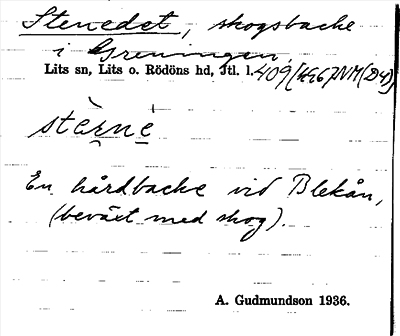 Stenedet, skogsbacke
i Greningen
Lits sn, Lits o. Rödöns hd, Jtl. l. 409
stèrne
En hårdbacke vid Blekån,
(beväxt med skog).
A. Gudmundson 1936.